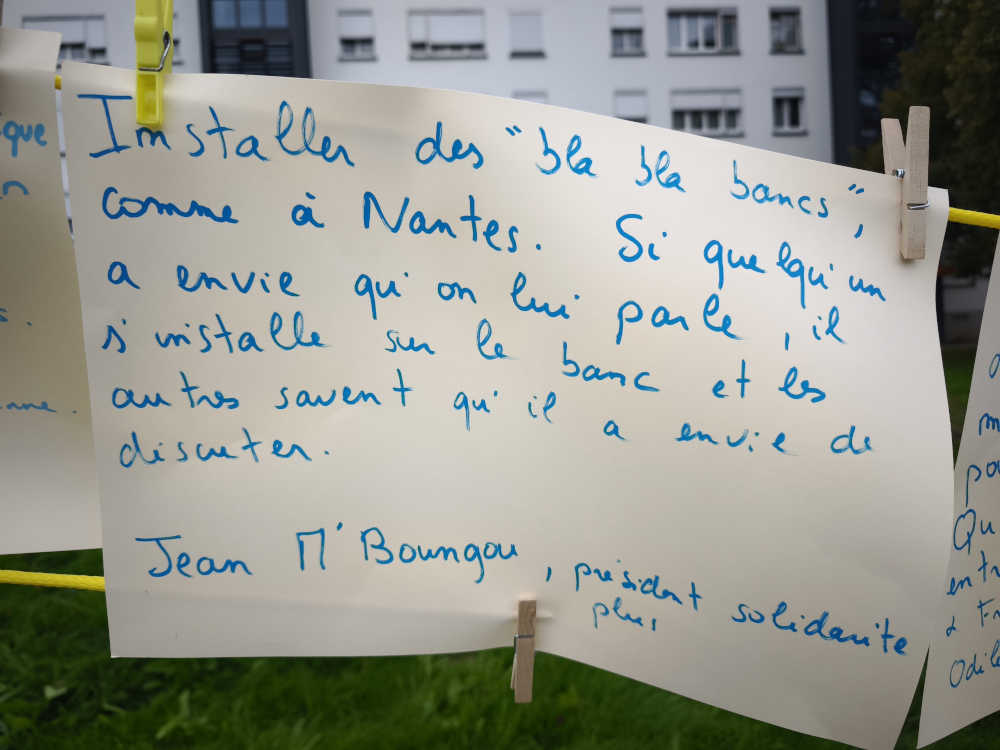 Installer des "bla bla bancs",
comme à Nantes. Si quelqu'un
a envie qu'on lui parle, il
s'installe sur le banc et les
autres savent qu'il a envie de
discuter.
Jean M'Boungou, président solidarite
plus,
que
n
s.
nne.
m
pou
Qu
entr
Odile